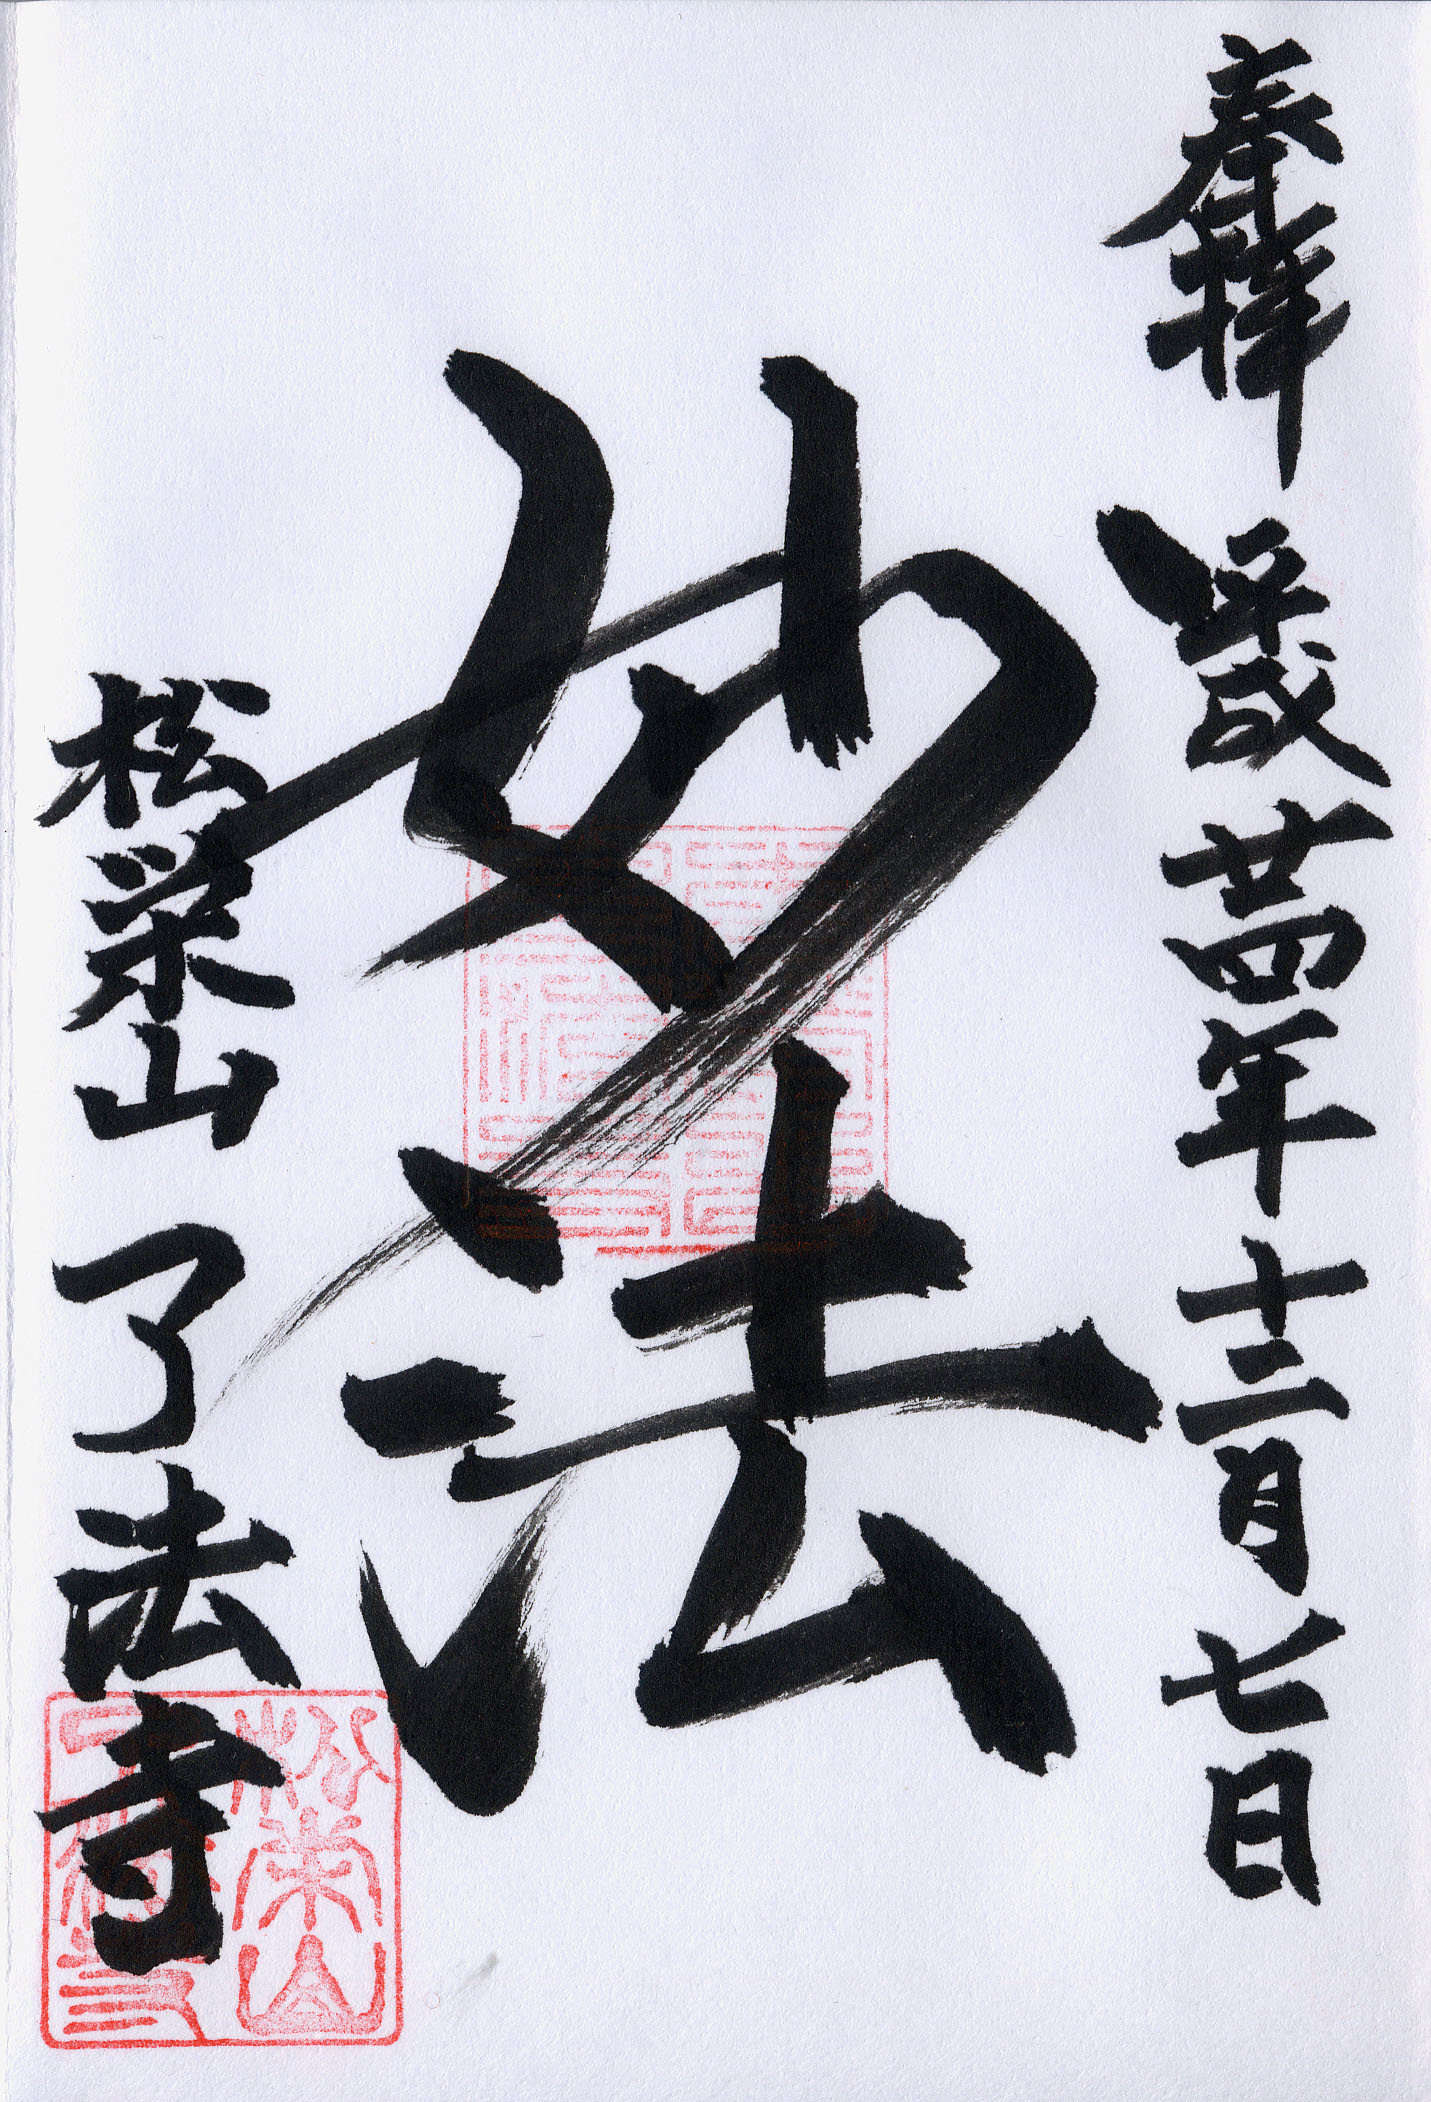 奉拝 平成廿四年十二月七日
妙法
松栄山 了法寺
松栄山